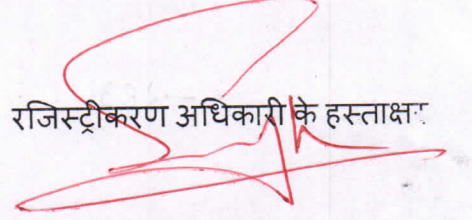 रजिस्ट्रीकरण अधिकारी के हस्ताक्षर